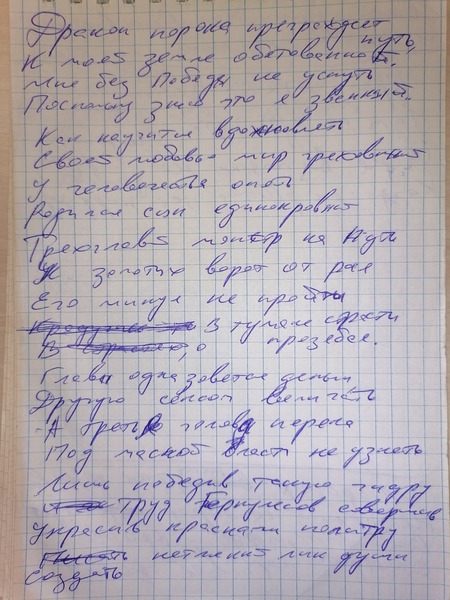 Дракон порока преграждает
путь,
К моей земле обетованной.
Мне без Победы не уснуть
Поскольку знаю что я званный.
Как научится вдохновлять
Своей любовью мир греховный
У человечества опять
Родился сын единокровный
Трехглавый монстр на пути
К золотых ворот от рая
Его минуя не пройти
В тумане страсти
В прозебая.
Глава одна зовется деньги
Другую сексом величать
А третью голову порока
Под маской власти не узнать
Лишь победив такую гидру
Труд Геркулесов совершив
Украсив красками палитру
нетленный лик души
создать